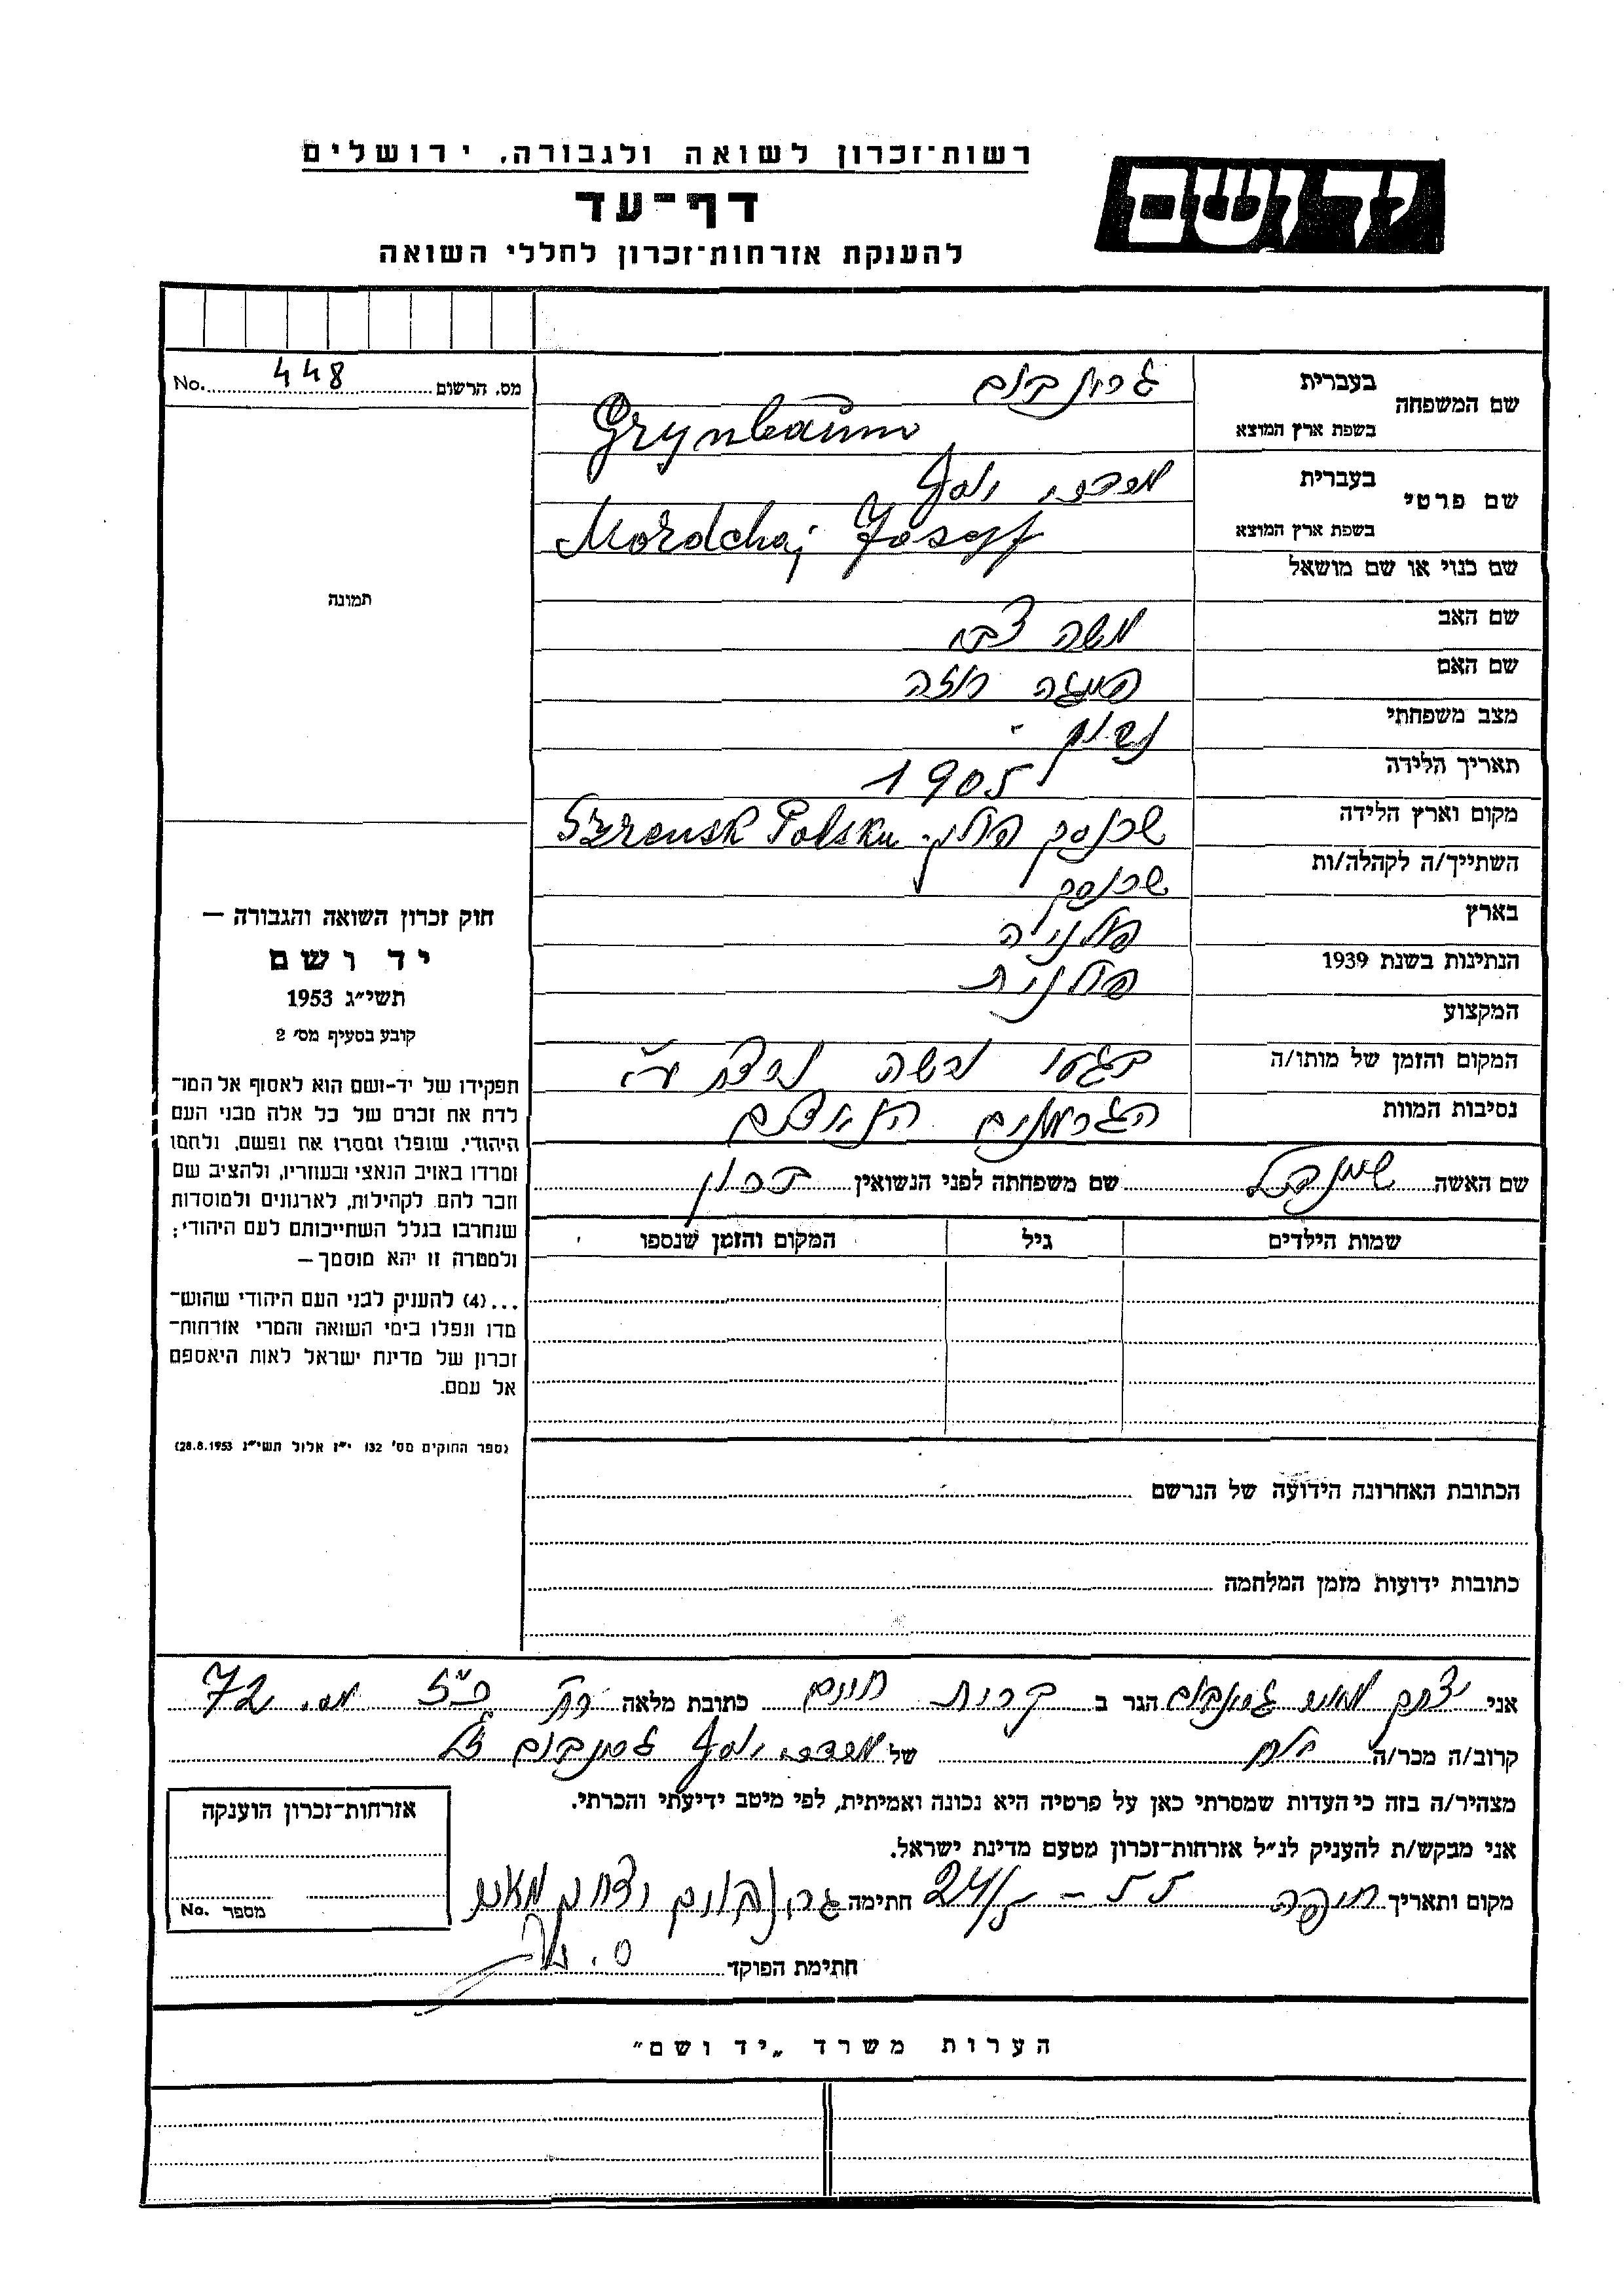 יד ושם
רשות־זכרון לשואה ולגבורה. ירושלים
דף־עד
להענקת אזרחות־זכרון לחללי השואה
מס. הרשום 448 No.
שם המשפחה
בעברית גרינבוים
בשפת ארץ המוצא Grynbaum
שם פרטי
בעברית מרדכי יוסף
בשפת ארץ המוצא Mordchaj Josef
שם כנוי או שם מושאל
שם האב משה צבי
שם האם פייגה רוזה
מצב משפחתי נשוי
תאריך הלידה 1905
מקום וארץ הלידה שרנסק פולין. Szrensk Polska
השתייך/ה לקהלה/ות שרנסק
בארץ פולניה
הנתינות בשנת 1939 פולנית
המקצוע
המקום והזמן של מותו/ה בגטו ורשה נרצח ע״י
נסיבות המוות הגרמנים הנאצים
שם האשה שיינדל שם משפחתה לפני הנשואין
שמות הילדים גיל המקום והזמן שנספו
הכתובת האחרונה הידועה של הנרשם
כתובות ידועות מזמן המלחמה
תמונה
חוק זכרון השואה והגבורה —
יד ושם
תשי״ג 1953
קובע בסעיף מס׳ 2
תפקידו של יד-ושם הוא לאסוף אל המו־
לדת את זכרם של כל אלה מבני העם
היהודי, שנפלו ומסרו את נפשם, נלחמו
ומרדו באויב הנאצי ובעוזריו, ולהציב שם
וזכר להם לקהילות, לארגונים ולמוסדות
שנחרבו בגלל השתייכותם לעם היהודי;
ולמטרה זו יהא מוסמך—
...(4) להעניק לבני העם היהודי שהוש־
מדו ונפלו בימי השואה והמרי אזרחות־
זכרון של מדינת ישראל לאות היאספם
אל עמם.
(ספר החוקים מס׳ 132 י״ז אלול תשי״ג 28.8.1953)
אני יצחק מאיר גרינבוים הגר ב קרית חיים כתובת מלאה רח כ״ז מס. 72
קרוב/ה מכר/ה אח של מרדכי יוסף גרינבוים ז״ל
מצהיר/ה בזה כי העדות שמסרתי כאן על פרטיה היא נכונה ואמיתית, לפי מיטב ידיעתי והכרתי.
אני מבקש/ת להעניק לנ״ל אזרחות־זכרון מטעם מדינת ישראל.
מקום ותאריך חיפה 24/5 – 55 חתימה גרינבוים יצחק מאיר
חתימת הפוקד
אזרחות־זכרון הוענקה
מספר No.
הערות משרד „יד ושם״